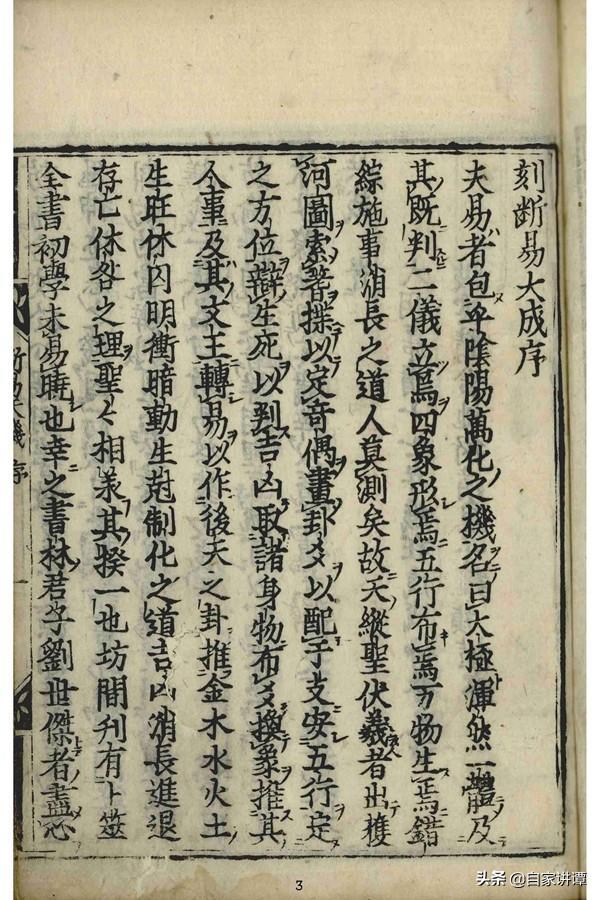 刻断易大成序
夫易者包乎陰陽萬化之機名曰太極渾然一體及
其既判二儀立焉四象形焉五行布焉万物生焉錯
綜施事消長之道人莫測矣故天縱聖伏羲者出獲
河圖索蓍揲以定竒偶畫卦爻以配干支安五行定
之方位辯生死以判吉凶取諸身物布爻換象推其
人事及其文王轉易以作後天之卦推金木水火土
生旺休囚明衝暗動生尅制化之道吉凶消長進退
存亡休咎之理聖〻相羕其揆一也坊間刋有卜筮
全書初學未易曉也幸之書林君子劉世傑者盡心
断易天機 序
3
头条 @自家讲谭